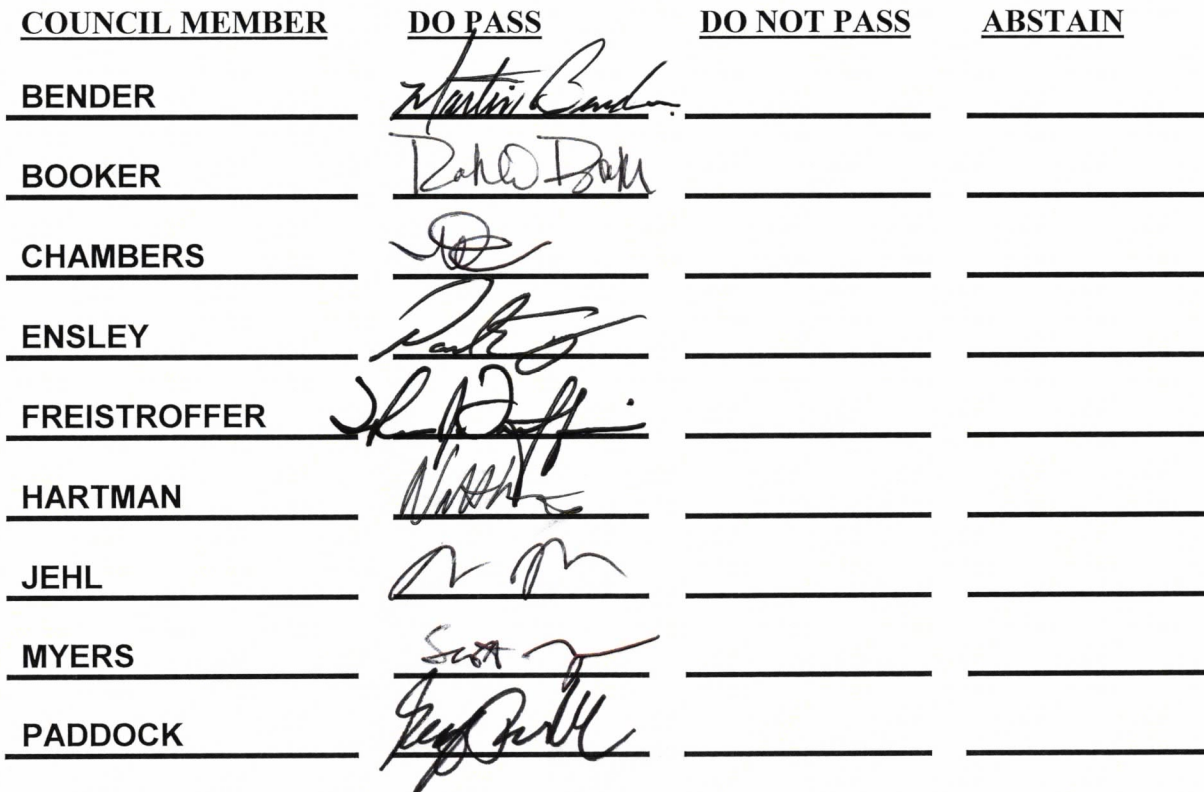 COUNCIL MEMBER DO PASS DO NOT PASS ABSTAIN
BENDER Martin Bender
BOOKER
CHAMBERS
ENSLEY Paul
FREISTROFFER
HARTMAN
JEHL
MYERS Scott
PADDOCK